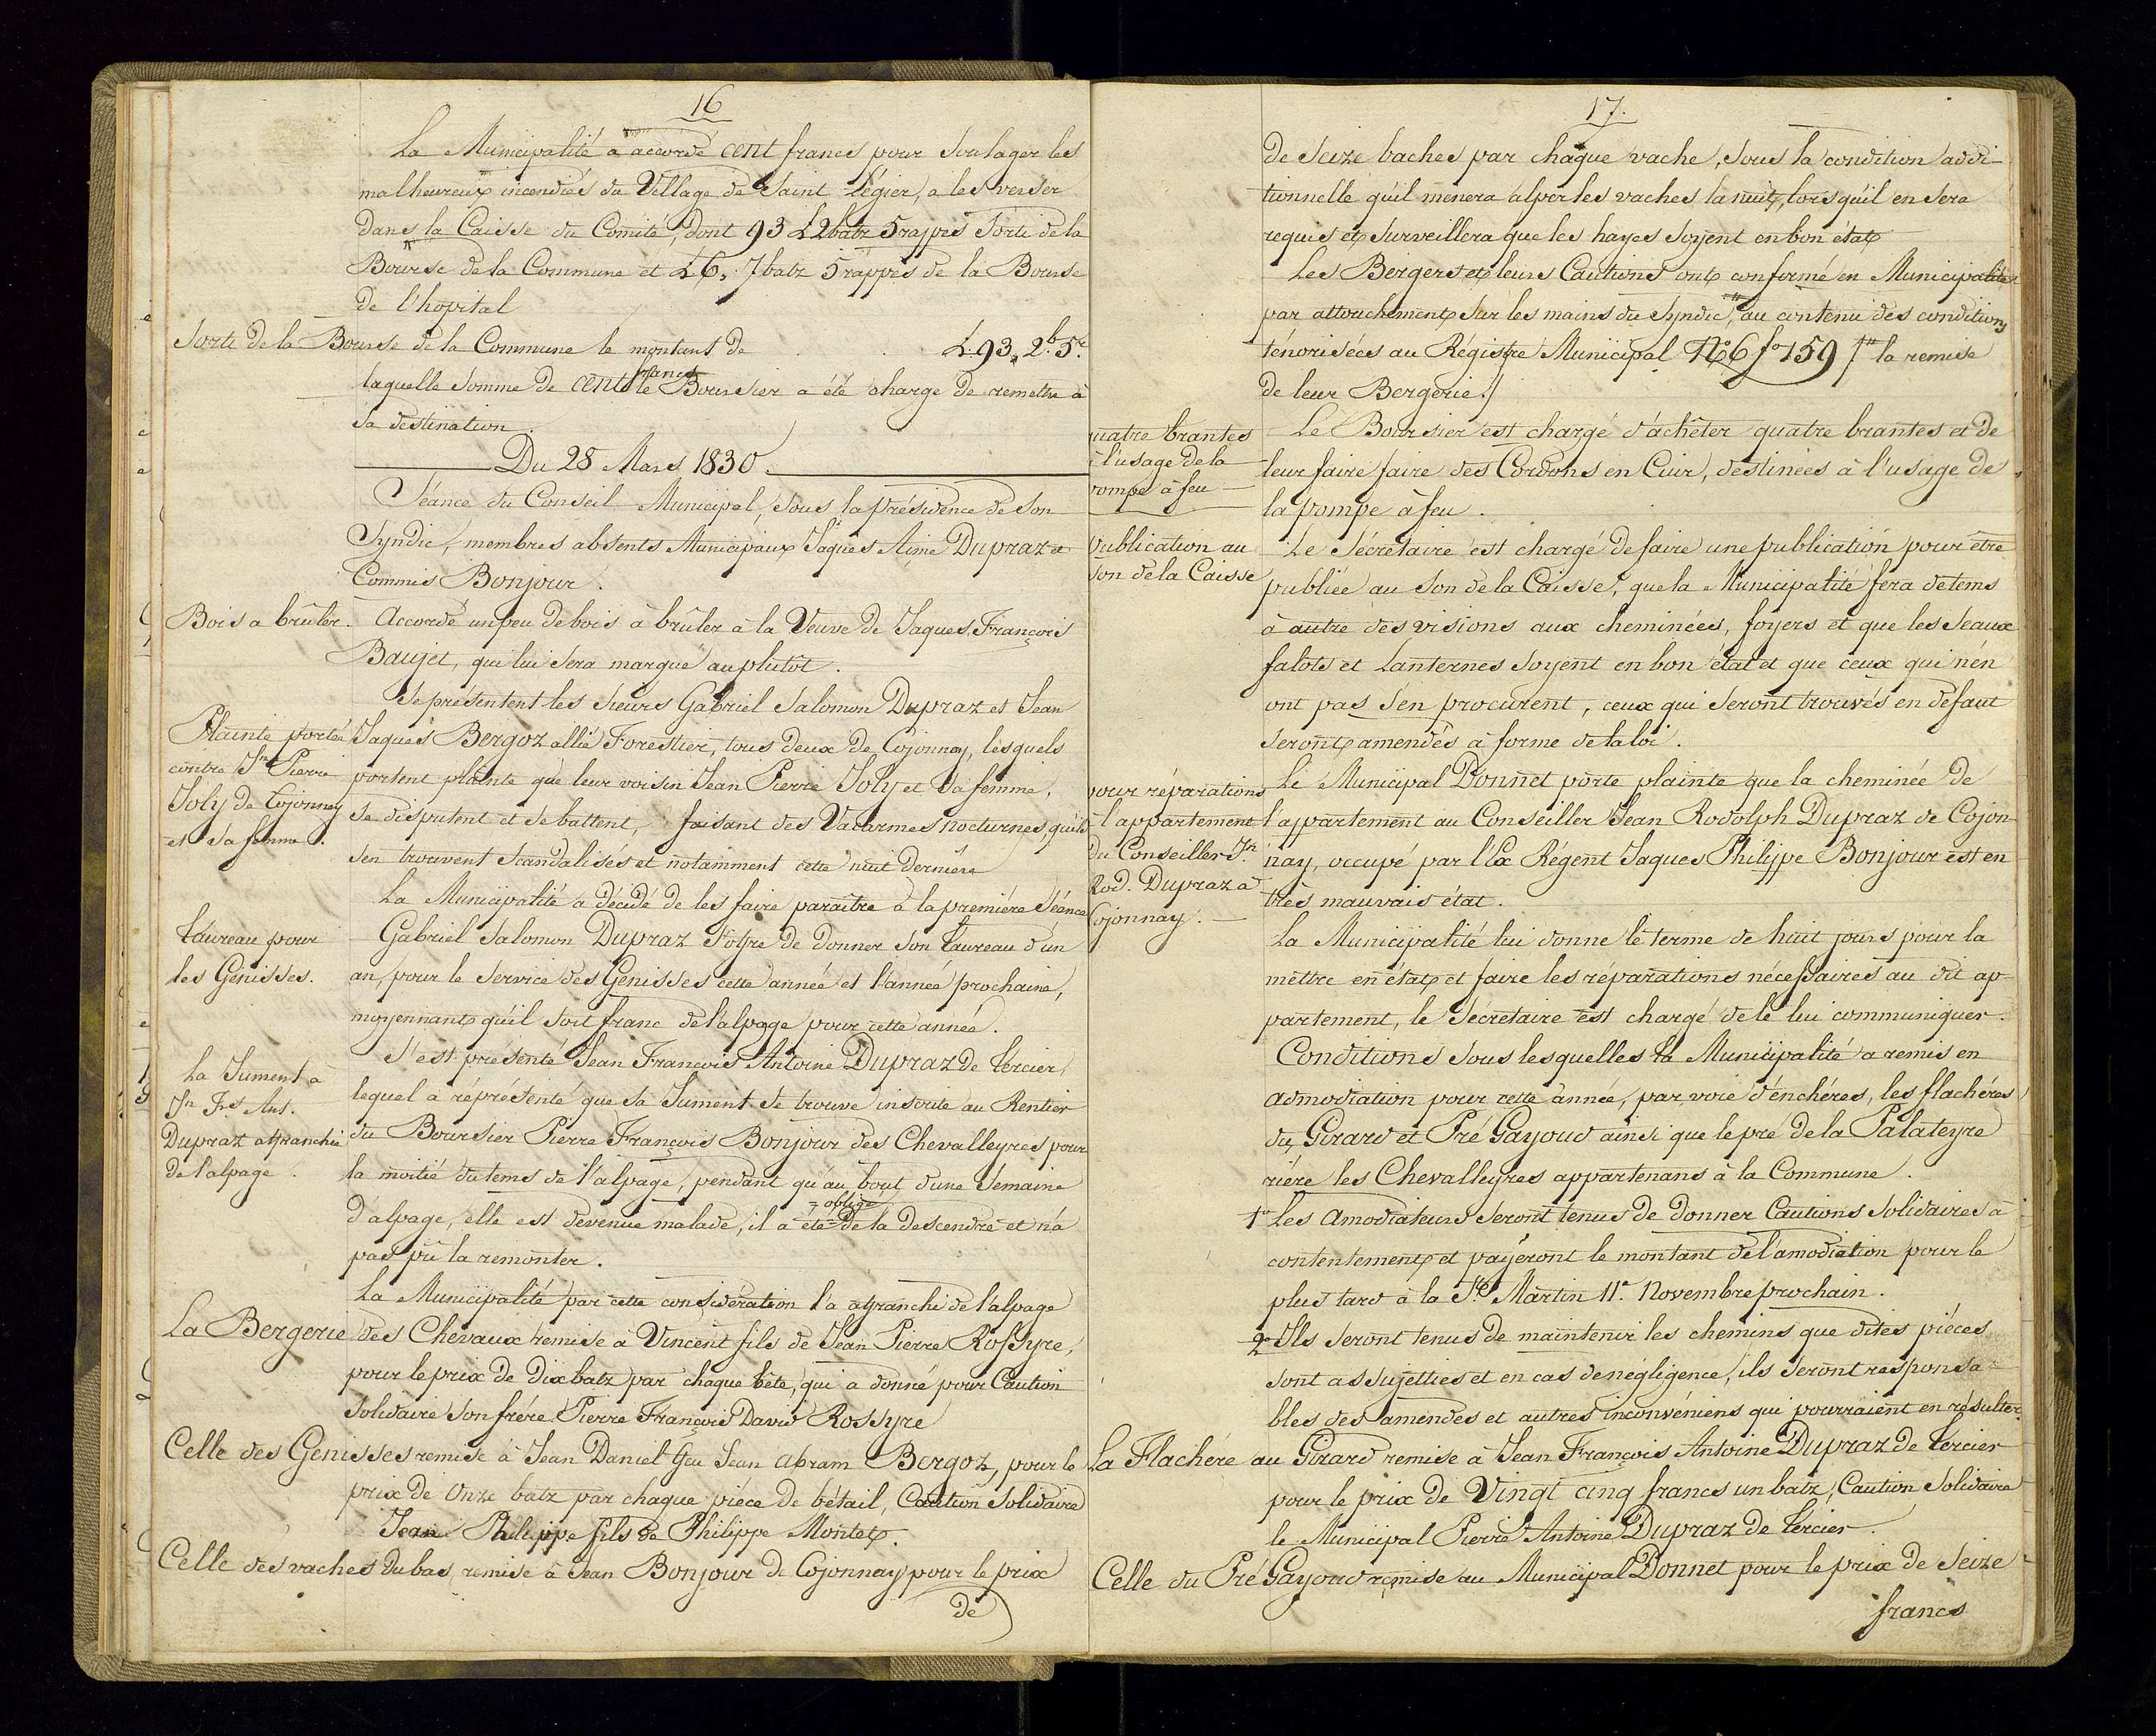 16
La Municipalité a accordé cent francs pour soulager les
malheureux incendiés du Village de Saint Légier, a les verser
dans la Caisse du Comité, dont 93 L 2 batz 5 rappes sorti de la
Bourse de la Commune et L 6, 7 batz 5 rappes de la Bourse
de l'hopital
Sorti de la Bourse de la Commune le montant de L. 93, 2.b 5.r
laquelle somme de cent francs le Boursier a été chargé de remettre à
sa destination.
Du 28 Mars 1830.
Séance du Conseil Municipal, sous la présidence de son
Syndic, membres absents Municipaux Jaques Aimé Dupraz et
Commis Bonjour.
Bois a brûler.
Accordé un peu de bois à brûler à la Veuve de Jaques François
Baujet, qui lui sera marqué au plutôt.
Se présentent les sieurs Gabriel Salomon Dupraz et Jean
Plainte portée
contre Jn Pierre
Joly de Cojonnay
et sa femme.
Jaques Bergoz allié Forestier, tous deux de Cojonnay, lesquels
portent plainte que leur voisin Jean Pierre Joly et sa femme,
se disputent et se battent, faisant des Vacarmes nocturnes, qu'ils
s'en trouvent scandalisés et notamment cette nuit dernière
La Municipalité a décidé de les faire paraître à la première Séance
taureau pour
les Génisses.
Gabriel Salomon Dupraz s'offre de donner son taureau d'un
an, pour le service des Genisses cette année et l'année prochaine,
moyennant qu'il soit franc de l'alpage pour cette année.
La Jument à
Jn Fs Ant.
Dupraz afranchie
de l'alpage.
S'est présenté Jean François Antoine Dupraz de tercier,
lequel a réprésenté que sa Jument se trouve inscrite au Rentier
du Boursier Pierre François Bonjour des Chevalleyres pour
la moitié du tems de l'alpage, pendant qu'au bout d'une Semaine
d'alpage, elle est devenue malade, il a été obligé de la descendre et n'a
pas pû la remonter.
La Municipalité par cette considération l'a afranchi de l'alpage
La Bergerie des Chevaux remise à Vincent fils de Jean Pierre Rossyre,
pour le prix de Dix batz par chaque bête, qui a donné pour Caution
solidaire son frére Pierre François David Rossyre
Celle des Genisses remise à Jean Daniel feu Jean Abram Bergoz, pour le
prix de Onze batz par chaque piéce de bétail, Caution Solidaire
Jean Philippe fils de Philippe Montet.
Celle des vaches du bas remise à Jean Bonjour de Cojonnay pour le prix
de
17.
de Seize baches par chaque vache, sous la condition addi-
tionnelle qu'il ménera alper les vaches la nuit, lors qu'il en sera
requis et surveillera que les hayes soyent en bon état
Les Bergers et leurs Cautions ont confirmé en Municipalité
par attouchement sur les mains du Syndic, au contenu des conditions
ténorisées au Régistre Municipal No 6 fo 159 la remise
de leur Bergerie./
quatre brantes
à l'usage de la
pompe à feu
Le Boursier est chargé d'achêter quatre brantes et de
leur faire faire des Cordons en Cuir, destinées à l'usage de
la pompe à feu.
Publication au
son de la Caisse
Le Sécrétaire est chargé de faire une publication pour être
publiée au son de la Caisse, que la Municipalité fera de tems
à autre des visions aux cheminées, foyers et que les seaux
falots et Lanternes soyent en bon état et que ceux qui n'en
ont pas s'en procurent, ceux qui seront trouvés en défaut
seront amendés à forme de la loi.
pour réparations
à l'appartement
du Conseiller Jn
Rod. Dupraz à
Cojonnay.
Le Municipal Donnet porte plainte que la cheminée de
l'appartement au Conseiller Jean Rodolph Dupraz de Cojon-
nay, occupé par l'Ex Régent Jaques Philippe Bonjour est en
très mauvais état.
La Municipalité lui donne le terme de huit jours pour la
mettre en état et faire les réparations nécessaires au dit ap-
partement, le Sécretaire est chargé de le lui communiquer.
Conditions sous lesquelles la Municipalité a remis en
admodiation pour cette année, par voie d'enchéres, les flachéres
du Girard et Pré Gayoud ainsi que le pré de la Palateyre
riére les Chevalleyres appartenans à la Commune.
1o Les Amodiateurs seront tenus de donner Cautions Solidaires à
contentement et payeront le montant de l'amodiation pour le
plus tard à la St Martin 11e Novembre prochain.
2o Ils seront tenus de maintenir les chemins que dites piéces
sont assujetties et en cas de négligence, ils seront responsa-
bles des amendes et autres inconvéniens qui pourraient en résulter.
La Flachére au Girard remise à Jean François Antoine Dupraz de tercier
pour le prix de Vingt cinq francs un batz, Caution Solidaire
le Municipal Pierre Antoine Dupraz de tercier.
Celle du Pré Gayoud remise au Municipal Donnet pour le prix de Seize
francs